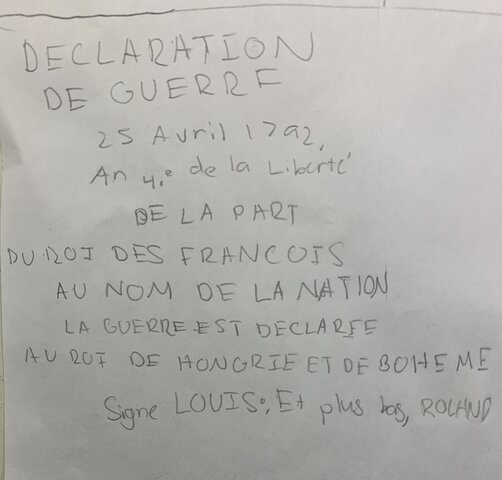 DECLARATION
DE GUERRE
25 Avril 1792,
An 4.e de la Liberté
DE LA PART
DU ROI DES FRANCOIS
AU NOM DE LA NATION
LA GUERRE EST DECLAREE
AU ROI DE HONGRIE ET DE BOHEME
Signe LOUIS; Et plus bas, ROLAND